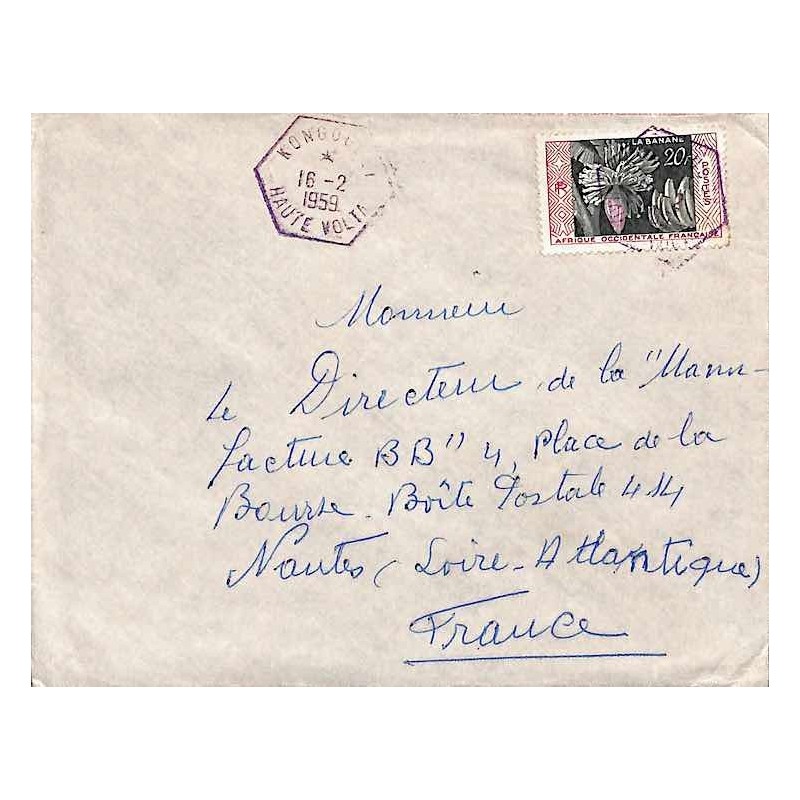 KONGOUSSI
16-2
1959
HAUTE VOLTA
LA BANANE
20F
RF
POSTES
AFRIQUE OCCIDENTALE FRANÇAISE
Monsieur
Le Directeur de la "Manu-
facture BB" 4, Place de la
Bourse. Boîte Postale 414
Nantes (Loire-Atlantique)
France